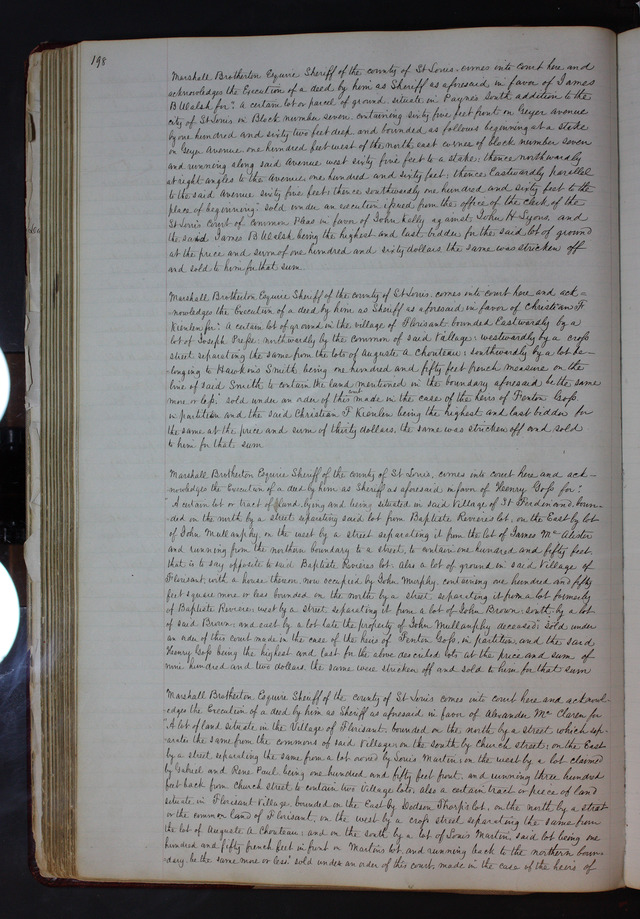 198
Marshall Brotherton Esquire Sheriff of the county of St Louis, comes into court here and
acknowledges the Execution of a deed by him as Sheriff as aforesaid in favor of James
B Walsh for "A certain lot or parcel of ground situate in Paynes South addition to the
city of St Louis in Block number seven containing sixty five feet front on Geyer avenue
by one hundred and sixty two feet deep and bounded as follows beginning at a Stake
on Geyer Avenue one hundred feet west of the north east corner of block number seven
and running along said Avenue west sixty five feet to a stake; thence northwardly
at right angles to the Avenue, one hundred and sixty feet; thence Eastwardly parallel
to the said avenue sixty five feet; thence southwardly one hundred and sixty feet to the
place of beginning" sold under an execution issued from the office of the clerk of the
St Louis Court of Common Pleas in favor of John Kelly against John H Lyons, and
the said James B Walsh being the highest and last bidder for the said lot of ground
at the price and sum of one hundred and sixty dollars, the same was stricken off
and sold to him for that sum.
Marshall Brotherton Esquire Sheriff of the county of St Louis, comes into court here and ack=
=nowledges the Execution of a deed by him as Sheriff as aforesaid in favor of Christian F
Kienlen for "A certain lot of ground in the village of Florisant bounded Eastwardly by a
lot of Joseph; northwardly by the common of said Village; westwardly by a cross
street separating the same from the lots of Auguste A Chouteau; southwardly by a lot be=
=longing to Hawkins Smith being one hundred and fifty feet french measure on the
line of said Smith to contain the land mentioned in the boundary aforesaid be the same
more or less," sold under an order of this court made in the case of the heirs of Fenton Goss,
in partition and the said Christian F Kienlen being the highest and last bidder for
the same at the price and sum of thirty dollars, the same was stricken off and sold
to him for that sum
Marshall Brotherton Esquire Sheriff of the county of St Louis, comes into court here and ack=
=nowledges the Execution of a deed by him as Sheriff as aforesaid in favor of Henry Goss for "
"A certain lot or tract of land, lying and being situated in said Village of St Ferdinand, boun-
=ded on the north by a street separating said lot from Baptiste Revieres lot, on the East by lot
of John Mullanphy, on the west by a street separating it from the lot of James McAlister
and running from the northern boundary to a street, to contain one hundred and fifty feet,
that is to say opposite to said Baptiste Revieres lot. Also a lot of ground in said Village of
Florisant, with a house thereon now occupied by John Murphy, containing one hundred and fifty
feet square more or less bounded on the north by a street, separating it from a lot formerly
of Baptiste Reviere; west by a street separating it from a lot of John Brown; south by a lot
of said Brown; and east by a lot late the property of John Mullanphy deceased" sold under
an order of this court made in the case of the heirs of Fenton Goss, in partition, and the said
Henry Goss being the highest and last for the above described lots at the price and sum of
nine hundred and two dollars, the same were stricken off and sold to him for that sum
Marshall Brotherton Esquire Sheriff of the county of St Louis comes into court here and acknowl-
=edges the Execution of a deed by him as Sheriff as aforesaid in favor of Alexander McClaren for
"A lot of land situate in the Village of Florisant, bounded on the north by a street which sep-
=arates the same from the commons of said Village; on the south by Church street; on the East
by a street separating the same from a lot owned by Louis Martin; on the west by a lot claimed
by Gabriel and Rene Paul, being one hundred and fifty feet front, and running three hundred
feet back from Church street to contain two Village lots. also a certain tract or piece of land
situate in Florisant Village bounded on the East by Dodson Tharps lot, on the north by a street
or the common land of Florisant, on the west by a cross street separating the same from
the lot of Auguste A Chouteau; and on the south by a lot of Louis Martin, said lot being one
hundred and fifty french feet in front on Martins lot, and running back to the northern boun=
=dary, be the same more or less" sold under an order of this court, made in the case of the heirs of